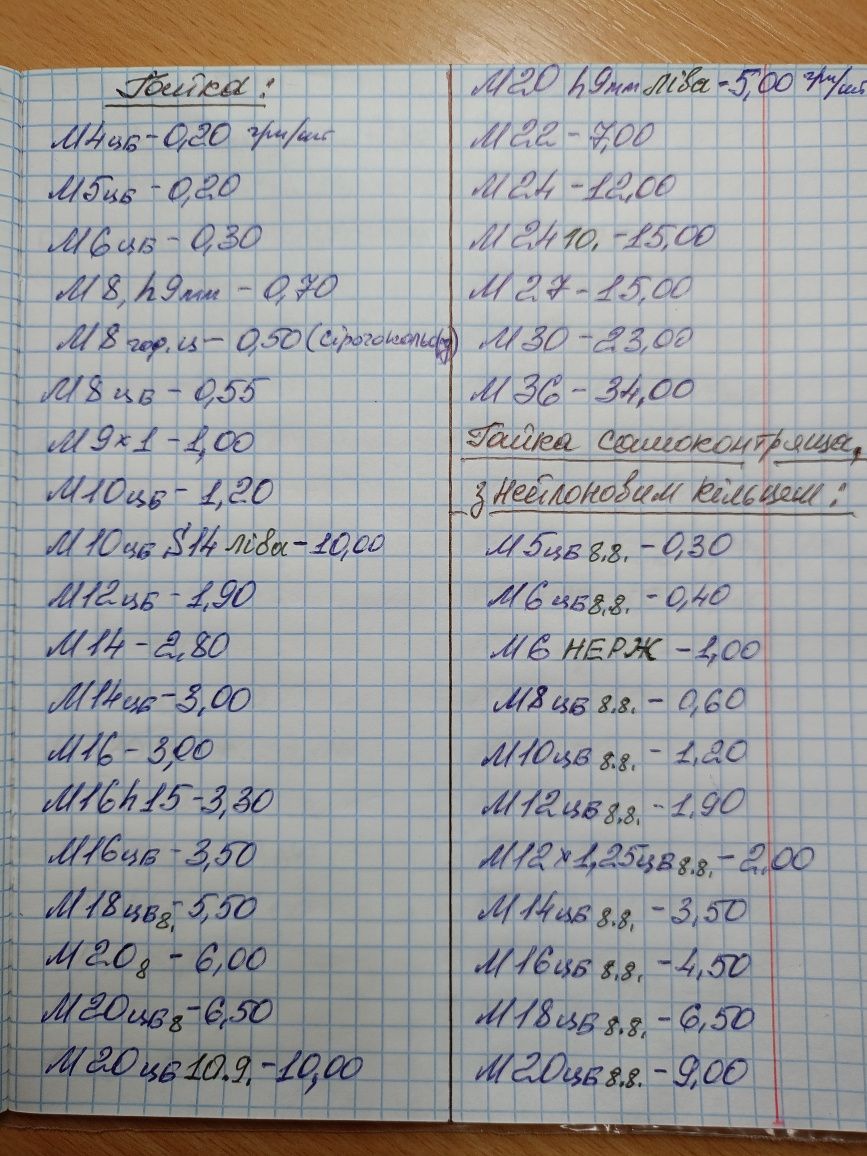 Гайка:
М4цб - 0,20 грн/шт
М5цб - 0,20
М6цб - 0,30
М8, h9мм - 0,70
М8 гор.ц - 0,50 (сірого кольору)
М8цб - 0,55
М9×1 - 1,00
М10цб - 1,20
М10цб S14 ліва - 10,00
М12цб - 1,90
М14 - 2,80
М14цб - 3,00
М16 - 3,00
М16 h15 - 3,30
М16цб - 3,50
М18цб8. - 5,50
М20 8 - 6,00
М20цб8 - 6,50
М20цб 10.9. - 10,00
М20 h9мм ліва - 5,00 грн/шт
М22 - 7,00
М24 - 12,00
М24 10. - 15,00
М27 - 15,00
М30 - 23,00
М36 - 34,00
Гайка самоконтряща,
з нейлоновим кільцем:
М5цб 8.8. - 0,30
М6цб 8.8. - 0,40
М6 НЕРЖ - 1,00
М8цб 8.8. - 0,60
М10цб 8.8. - 1,20
М12цб 8.8. - 1,90
М12×1,25цб 8.8. - 2,00
М14цб 8.8. - 3,50
М16цб 8.8. - 4,50
М18цб 8.8. - 6,50
М20цб 8.8. - 9,00